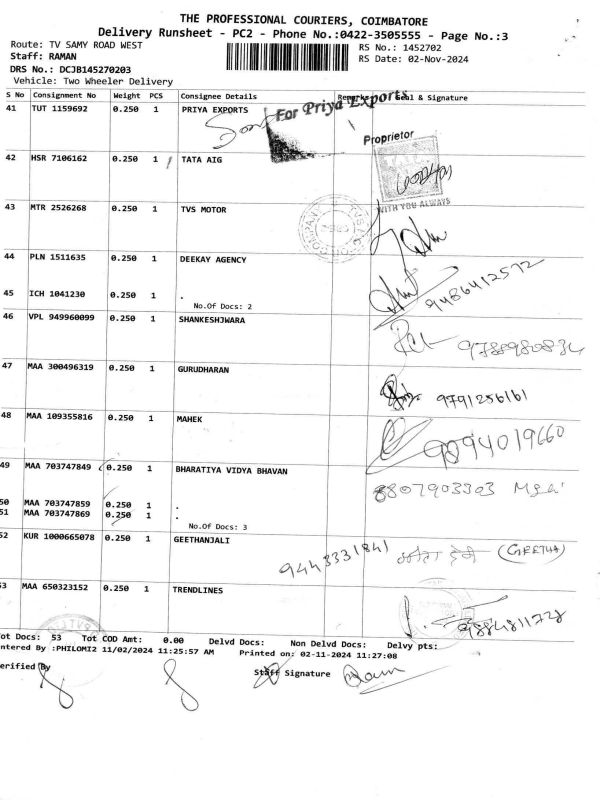 THE PROFESSIONAL COURIERS, COIMBATORE
Delivery Runsheet - PC2 - Phone No.:0422-3505555 - Page No.:3
Route: TV SAMY ROAD WEST
RS No.: 1452702
Staff: RAMAN
RS Date: 02-Nov-2024
DRS No.: DCJB145270203
Vehicle: Two Wheeler Delivery
S No Consignment No Weight PCS Consignee Details Remarks Seal & Signature
41 TUT 1159692 0.250 1 PRIYA EXPORTS
For Priya Exports
Proprietor
42 HSR 7106162 0.250 1 TATA AIG
WITH YOU ALWAYS
43 MTR 2526268 0.250 1 TVS MOTOR
44 PLN 1511635 0.250 1 DEEKAY AGENCY
9486412572
45 ICH 1041230 0.250 1 .
No.Of Docs: 2
46 VPL 949960099 0.250 1 SHANKESHJWARA
9789980834
47 MAA 300496319 0.250 1 GURUDHARAN
9791256161
48 MAA 109355816 0.250 1 MAHEK
9894019660
49 MAA 703747849 0.250 1 BHARATIYA VIDYA BHAVAN
8807903303
50 MAA 703747859 0.250 1 .
51 MAA 703747869 0.250 1 .
No.Of Docs: 3
52 KUR 1000665078 0.250 1 GEETHANJALI
9443331841 (GEETHA)
53 MAA 650323152 0.250 1 TRENDLINES
9884811728
Tot Docs: 53 Tot COD Amt: 0.00 Delvd Docs: Non Delvd Docs: Delvy pts:
ntered By :PHILOMI2 11/02/2024 11:25:57 AM Printed on: 02-11-2024 11:27:08
erified By Staff Signature